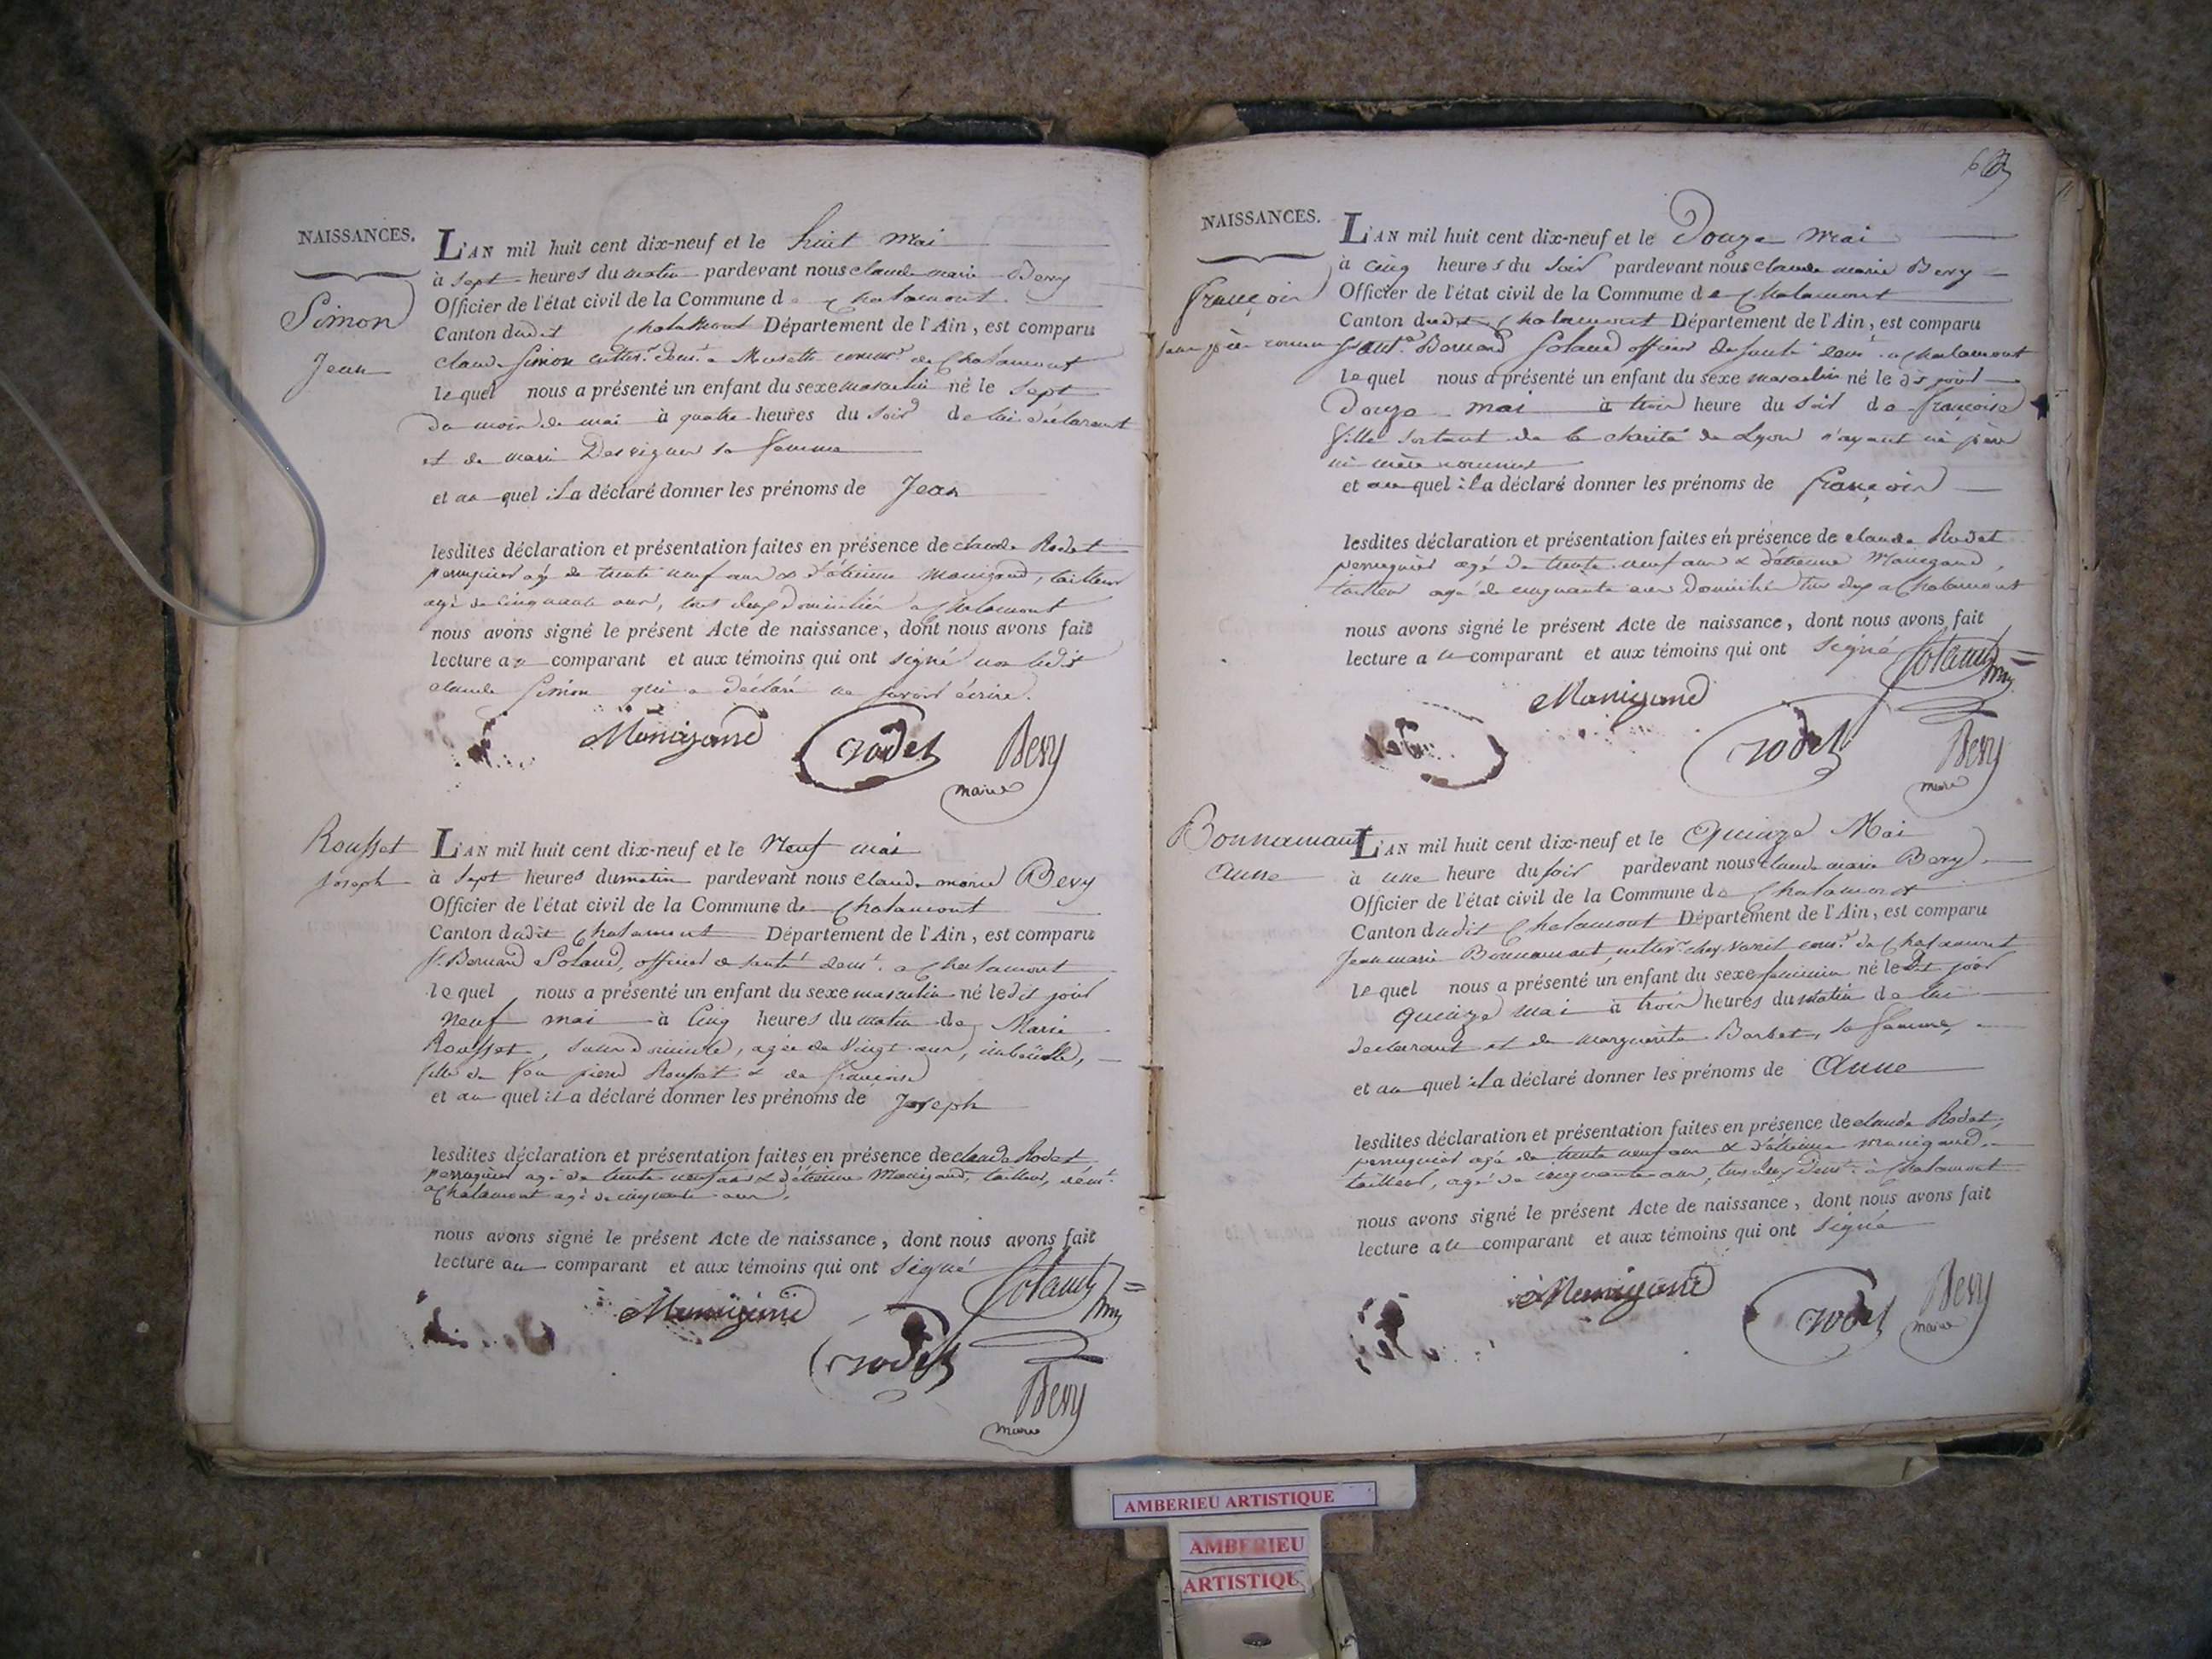 NAISSANCES.
Simon
Jean
L'AN mil huit cent dix-neuf et le huit mai
à sept heures du matin pardevant nous claude marie Bevy
Officier de l'état civil de la Commune de Chalamont
Canton dudit Chalamont Département de l'Ain, est comparu
claude Simon cultivr demt a commne de Chalamont
lequel nous a présenté un enfant du sexe masculin né le sept
du mois de mai à quatre heures du soir de lui déclarant
et de marie Desvignes sa femme
et au quel il a déclaré donner les prénoms de Jean
lesdites déclaration et présentation faites en présence de claude Rodet
perruquier agé de trente neuf ans & d'étienne Manigand, tailleur
agé de cinquante ans, tous deux domiciliés a Chalamont
nous avons signé le présent Acte de naissance, dont nous avons fait
lecture au comparant et aux témoins qui ont signé non ledit
claude Simon qui a déclaré ne savoir écrire.
Manigand rodet Bevy
maire
Rousset
Joseph
L'AN mil huit cent dix-neuf et le Neuf mai
à sept heures du matin pardevant nous claude marie Bevy
Officier de l'état civil de la Commune de Chalamont
Canton dudit Chalamont Département de l'Ain, est comparu
Sr Bernard Soland, officier de santé demt a Chalamont
lequel nous a présenté un enfant du sexe masculin né ledit jour
neuf mai à cinq heures du matin de Marie
Rousset, agée de vingt ans, imbécille,
fille de feu pierre Rousset & de françoise
et au quel il a déclaré donner les prénoms de Joseph
lesdites déclaration et présentation faites en présence de claude Rodet
perruquier agé de trente neuf ans & d'étienne Manigand, tailleur, demt
a Chalamont agé de cinquante ans,
nous avons signé le présent Acte de naissance, dont nous avons fait
lecture au comparant et aux témoins qui ont signé
Manigand Soland
rodet
Bevy
maire
NAISSANCES.
françois
L'AN mil huit cent dix-neuf et le Douze mai
à cinq heures du soir pardevant nous claude marie Bevy
Officier de l'état civil de la Commune de Chalamont
Canton dudit Chalamont Département de l'Ain, est comparu
Bernard Soland officier de santé demt a Chalamont
lequel nous a présenté un enfant du sexe masculin né le dit jour
Douze mai à trois heure du soir de françoise
fille sortant de la charité de Lyon n'ayant ni père
ni mère connus
et au quel il a déclaré donner les prénoms de françois
lesdites déclaration et présentation faites en présence de claude Rodet
perruquier agé de trente neuf ans & d'étienne Manigand,
tailleur agé de cinquante ans domiciliés tous deux a Chalamont
nous avons signé le présent Acte de naissance, dont nous avons fait
lecture au comparant et aux témoins qui ont signé
Soland
Manigand
rodet Bevy
maire
Bonnamant
anne
L'AN mil huit cent dix-neuf et le Quinze Mai
à une heure du soir pardevant nous claude marie Bevy
Officier de l'état civil de la Commune de Chalamont
Canton dudit Chalamont Département de l'Ain, est comparu
Jean marie Bonnamant, cultivr chez commne de Chalamont
lequel nous a présenté un enfant du sexe feminin né le dit jour
quinze mai à trois heures du matin de lui
declarant et de marguerite Barbet, sa femme,
et au quel il a déclaré donner les prénoms de Anne
lesdites déclaration et présentation faites en présence de claude Rodet,
perruquier agé de trente neuf ans & d'étienne manigand
tailleur, agé de cinquante ans, tous deux demt à Chalamont
nous avons signé le présent Acte de naissance, dont nous avons fait
lecture au comparant et aux témoins qui ont signé
Manigand rodet Bevy
maire
AMBERIEU ARTISTIQUE
AMBERIEU
ARTISTIQUE